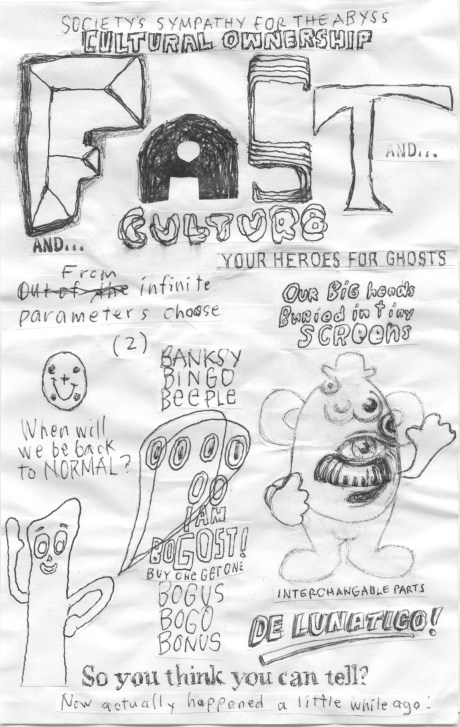 SOCIETY'S SYMPATHY FOR THE ABYSS
CULTURAL OWNERSHIP
FaST
AND...
CULTURE
AND...
YOUR HEROES FOR GHOSTS
From
Out of the infinite
parameters choose
OUR BIG heads
Buried in tiny
SCREENS
(2)
BANKSY
BINGO
BEEPLE
When will
we be back
to NORMAL?
GOOD
OO
I AM
BOGOST!
BUY ONE GET ONE
BOGUS
BOGO
BONUS
INTERCHANGABLE PARTS
DE LUNATICO!
So you think you can tell?
Now actually happened a little while ago!